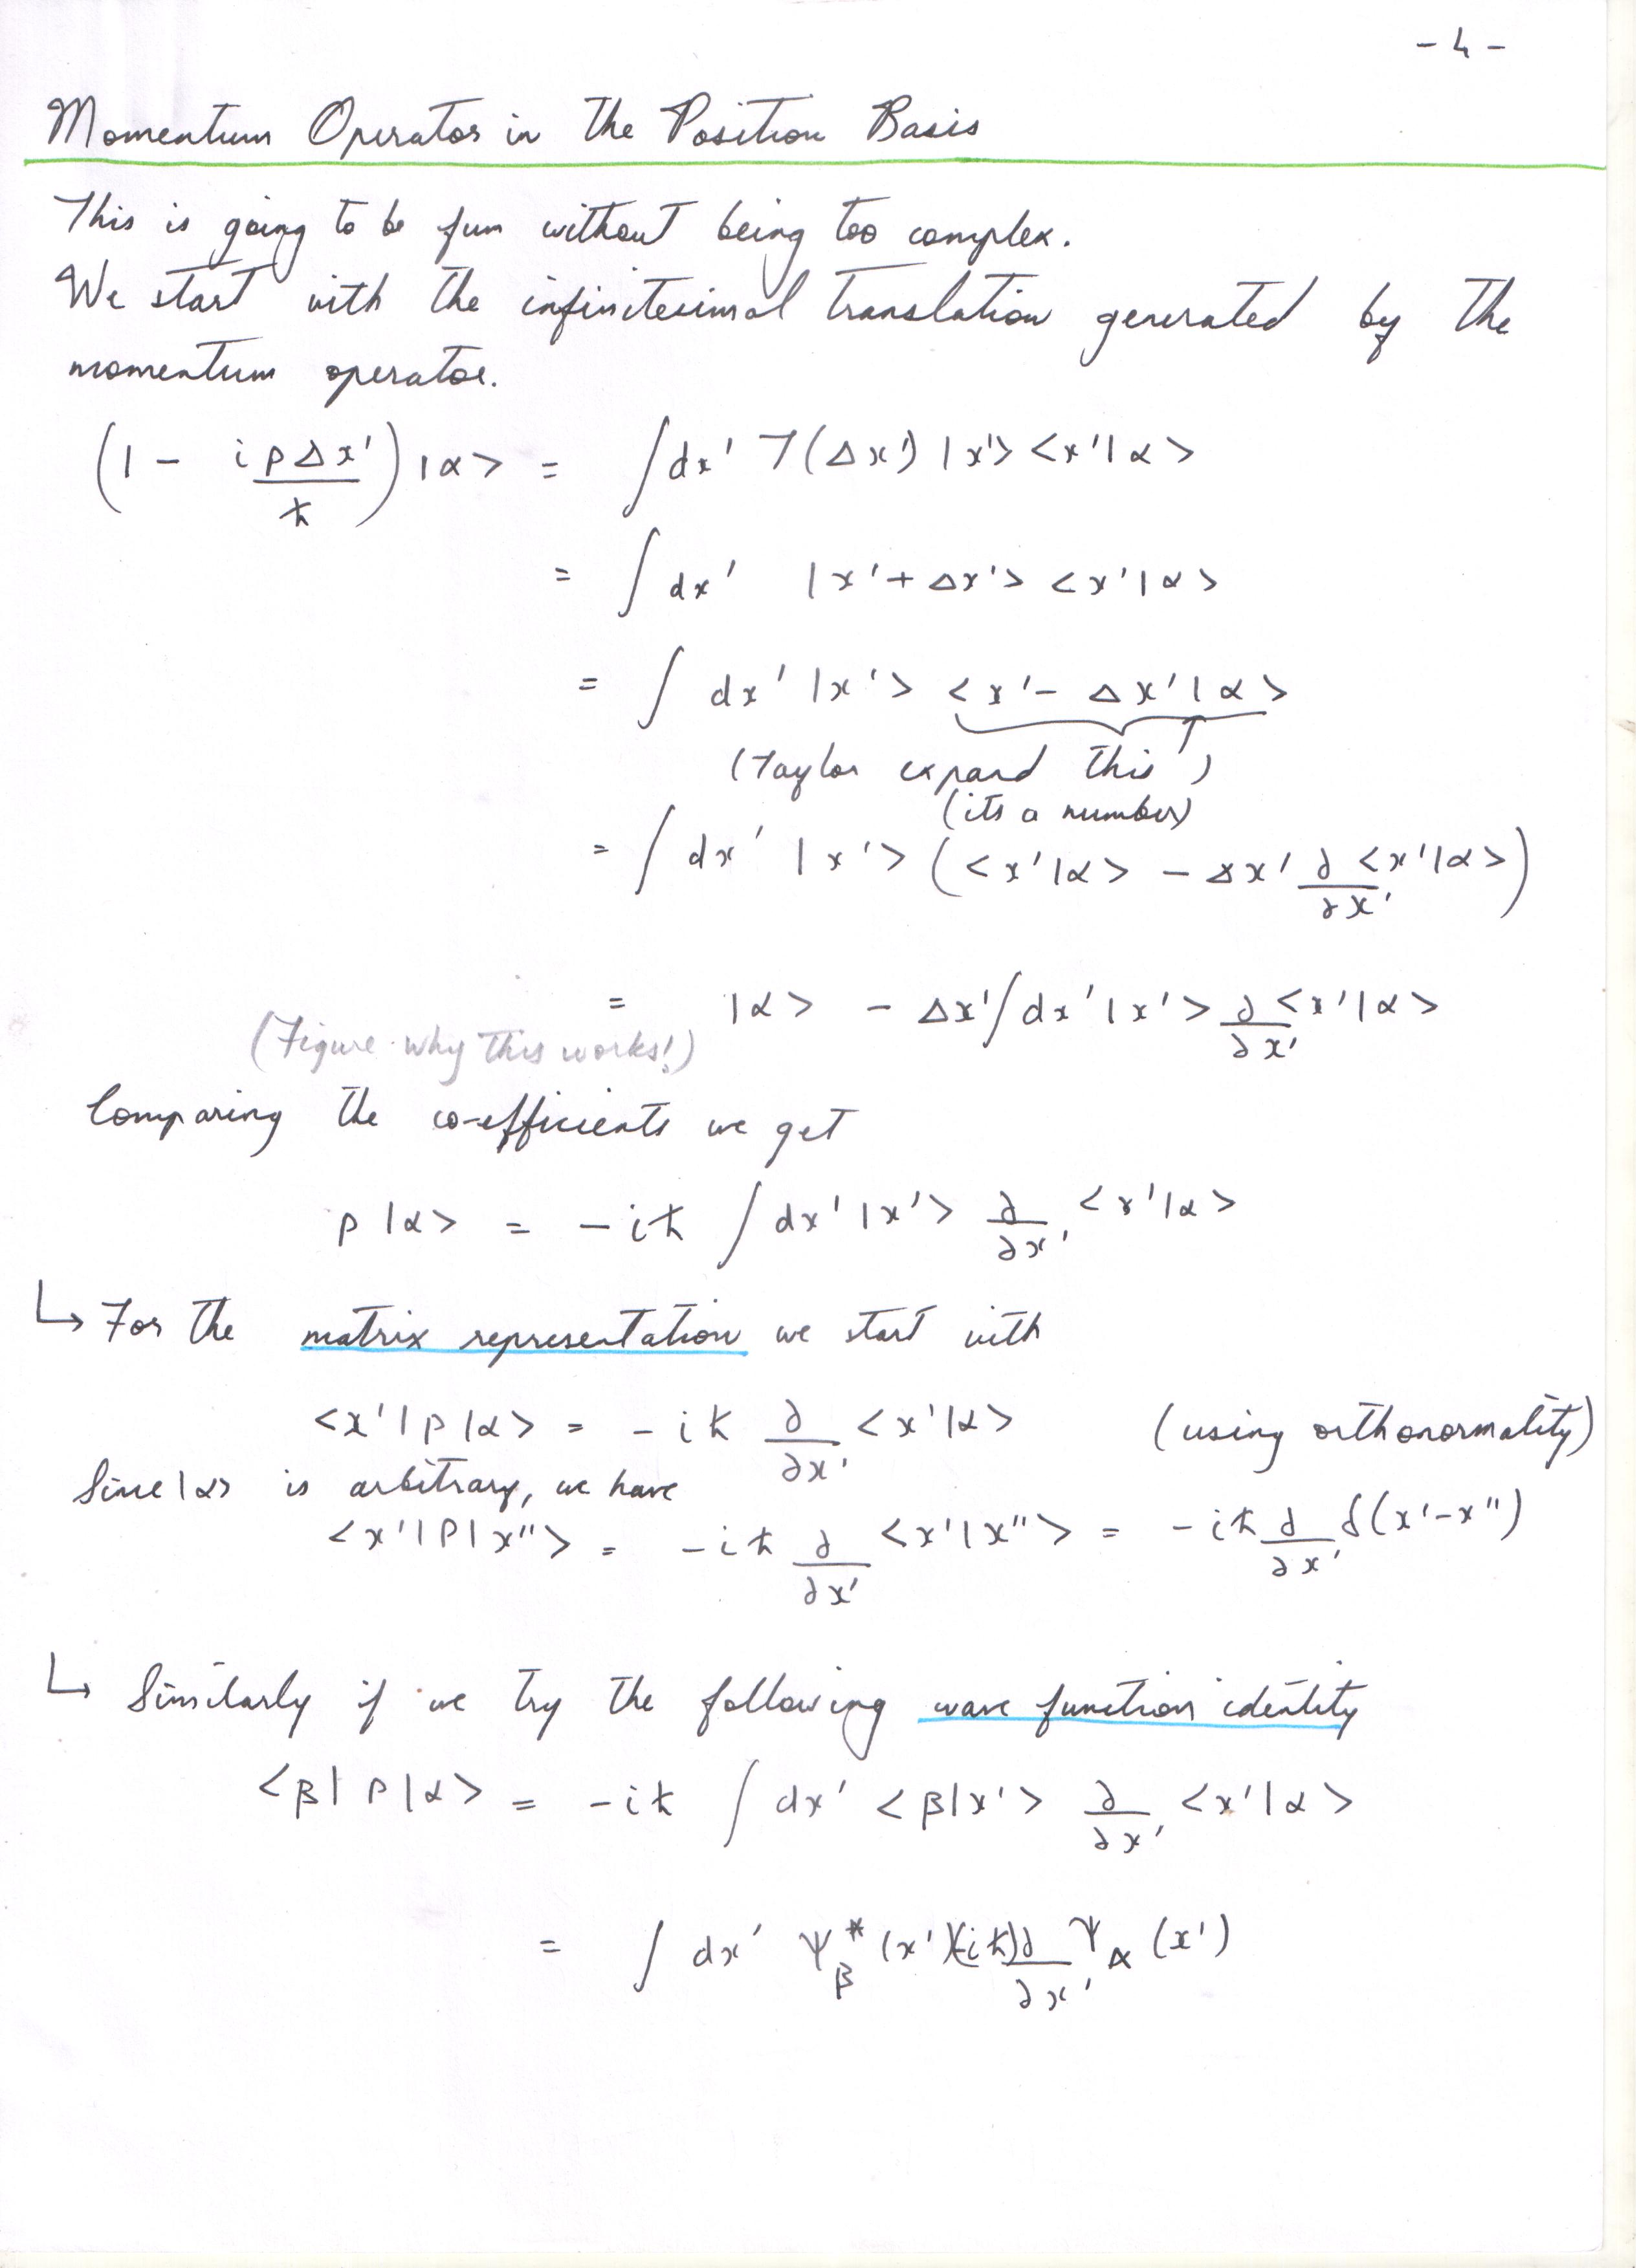 - 4 -
Momentum Operator in the Position Basis
This is going to be fun without being too complex.
We start with the infinitesimal translation generated by the
momentum operator.
(1 - i pΔx'/ħ) |α> = ∫dx' T(Δx') |x'> <x'|α>
= ∫dx' |x'+Δx'> <x'|α>
= ∫dx' |x'> <x'-Δx'|α>
(Taylor expand this)
(its a number)
= ∫dx' |x'> (<x'|α> - Δx' ∂/∂x' <x'|α>)
= |α> - Δx'∫dx' |x'> ∂/∂x' <x'|α>
(Figure why this works!)
Comparing the co-efficients we get
p |α> = -iħ ∫dx' |x'> ∂/∂x' <x'|α>
↳ For the matrix representation we start with
<x'|p|α> = -iħ ∂/∂x' <x'|α> (using orthonormality)
Since |α> is arbitrary, we have
<x'|p|x''> = -iħ ∂/∂x' <x'|x''> = -iħ ∂/∂x' δ(x'-x'')
↳ Similarly if we try the following wave function identity
<β|p|α> = -iħ ∫dx' <β|x'> ∂/∂x' <x'|α>
= ∫dx' Ψ*β(x')(-iħ)∂/∂x' Ψα(x')